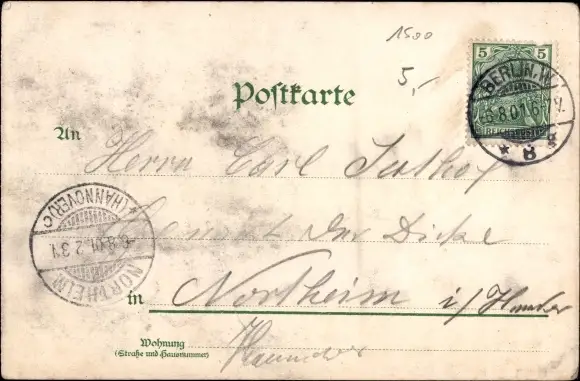 1500
5,-
5 5
REICHSPOST
BERLIN.W.
5.8.01.6-7N.
* 8 g
Postkarte
An
Herrn Carl
Der Dicke
(HANNOVER) C
6.8.01. 2-3N
NORTHEIM
in Northeim i/ Hannover
Wohnung
(Straße und Hausnummer)
Hannover